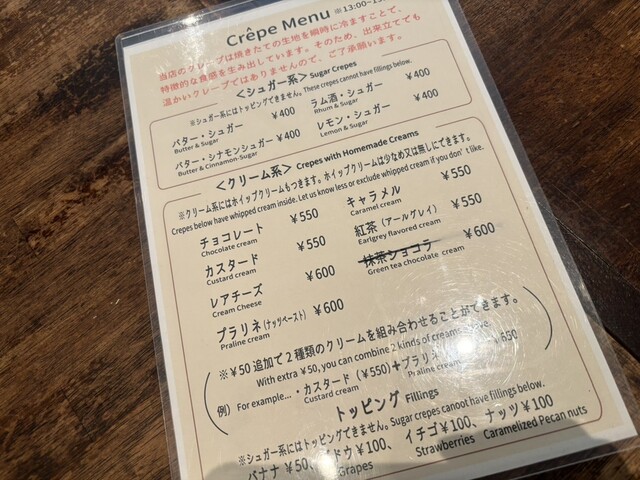 Crêpe Menu ※13:00~15
当店のクレープは焼きたての生地を瞬時に冷ますことで、
特徴的な食感を生み出しています。そのため、出来立てでも
温かいクレープではありませんので、ご了承願います。
<シュガー系> Sugar Crepes
※シュガー系にはトッピングできません。These crepes cannot have fillings below.
バター・シュガー ¥400
Butter & Sugar
ラム酒・シュガー ¥400
Rhum & Sugar
バター・シナモンシュガー ¥400
Butter & Cinnamon-Sugar
レモン・シュガー ¥400
Lemon & Sugar
<クリーム系> Crepes with Homemade Creams
※クリーム系にはホイップクリームもつきます。ホイップクリームは少なめ又は無しにできます。
Crepes below have whipped cream inside. Let us know less or exclude whipped cream if you don't like.
チョコレート ¥550
Chocolate cream
キャラメル ¥550
Caramel cream
カスタード ¥550
Custard cream
紅茶（アールグレイ） ¥550
Earlgrey flavored cream
レアチーズ ¥600
Cream Cheese
抹茶ショコラ ¥600
Green tea chocolate cream
プラリネ(ナッツペースト) ¥600
Praline cream
※¥50追加で2種類のクリームを組み合わせることができます。
With extra ¥50, you can combine 2 kinds of creams
例） For example... ・カスタード（¥550）+プラリネ 650
Custard cream Praline
トッピング Fillings
※シュガー系にはトッピングできません。Sugar crepes canoot have fillings below.
バナナ ¥50、 ドウ ¥100、 イチゴ ¥100、 ナッツ ¥100
Grapes Strawberries Caramelized Pecan nuts